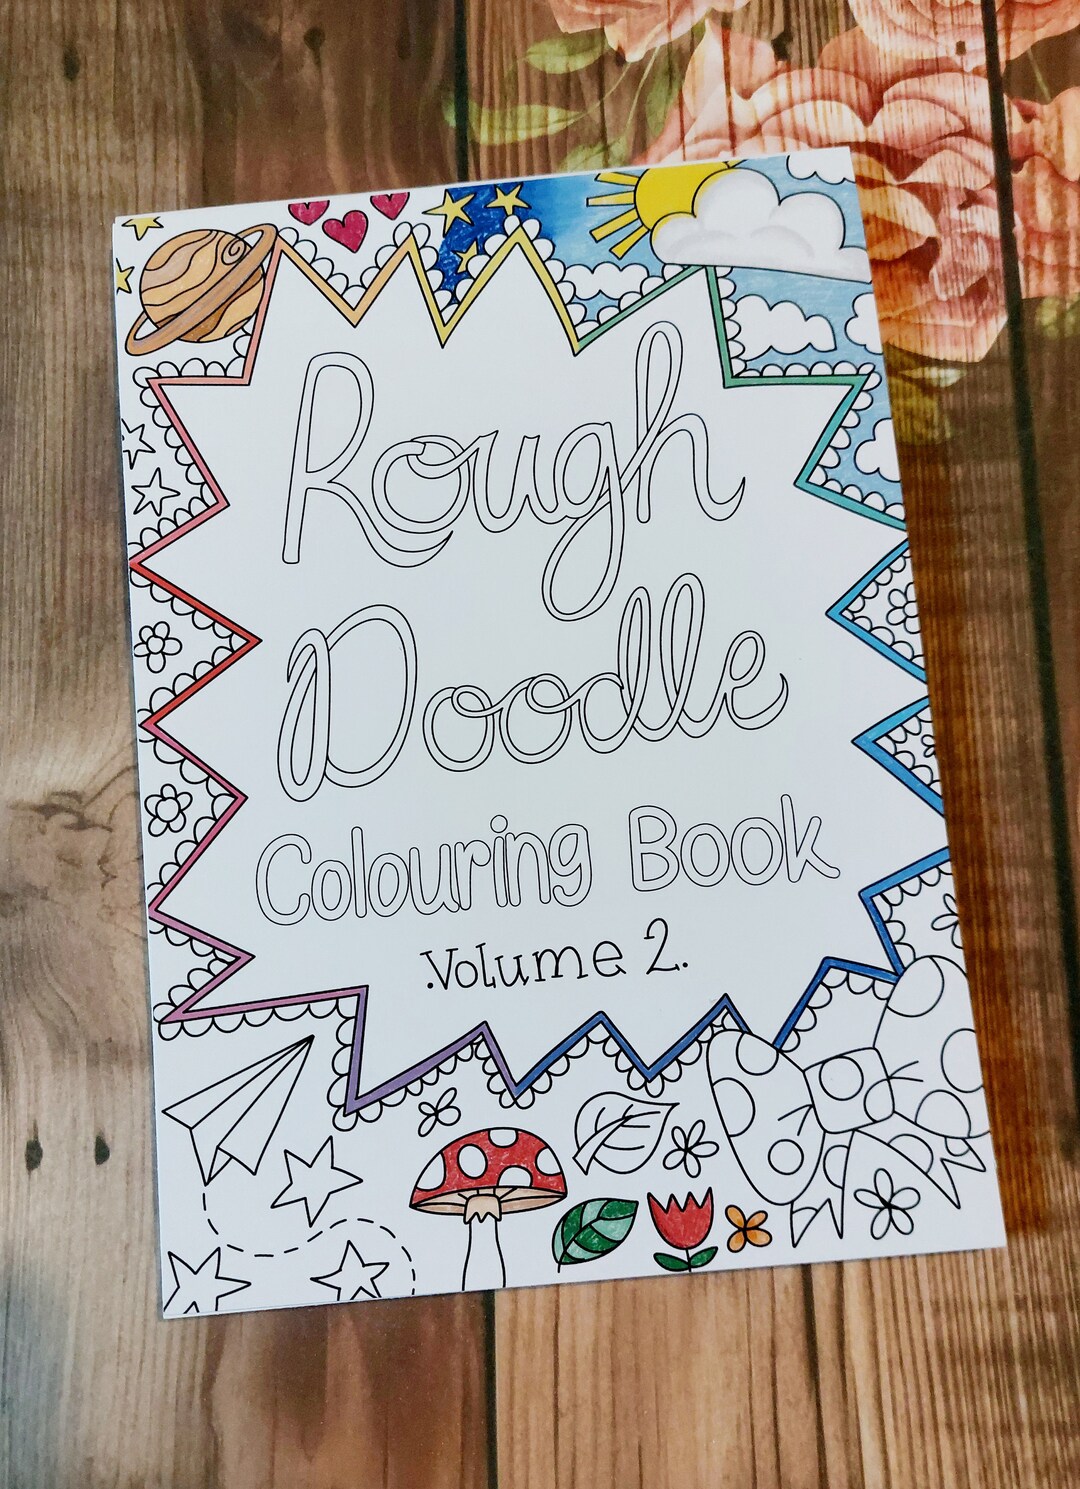 Rough
Doodle
Colouring Book
.Volume 2.